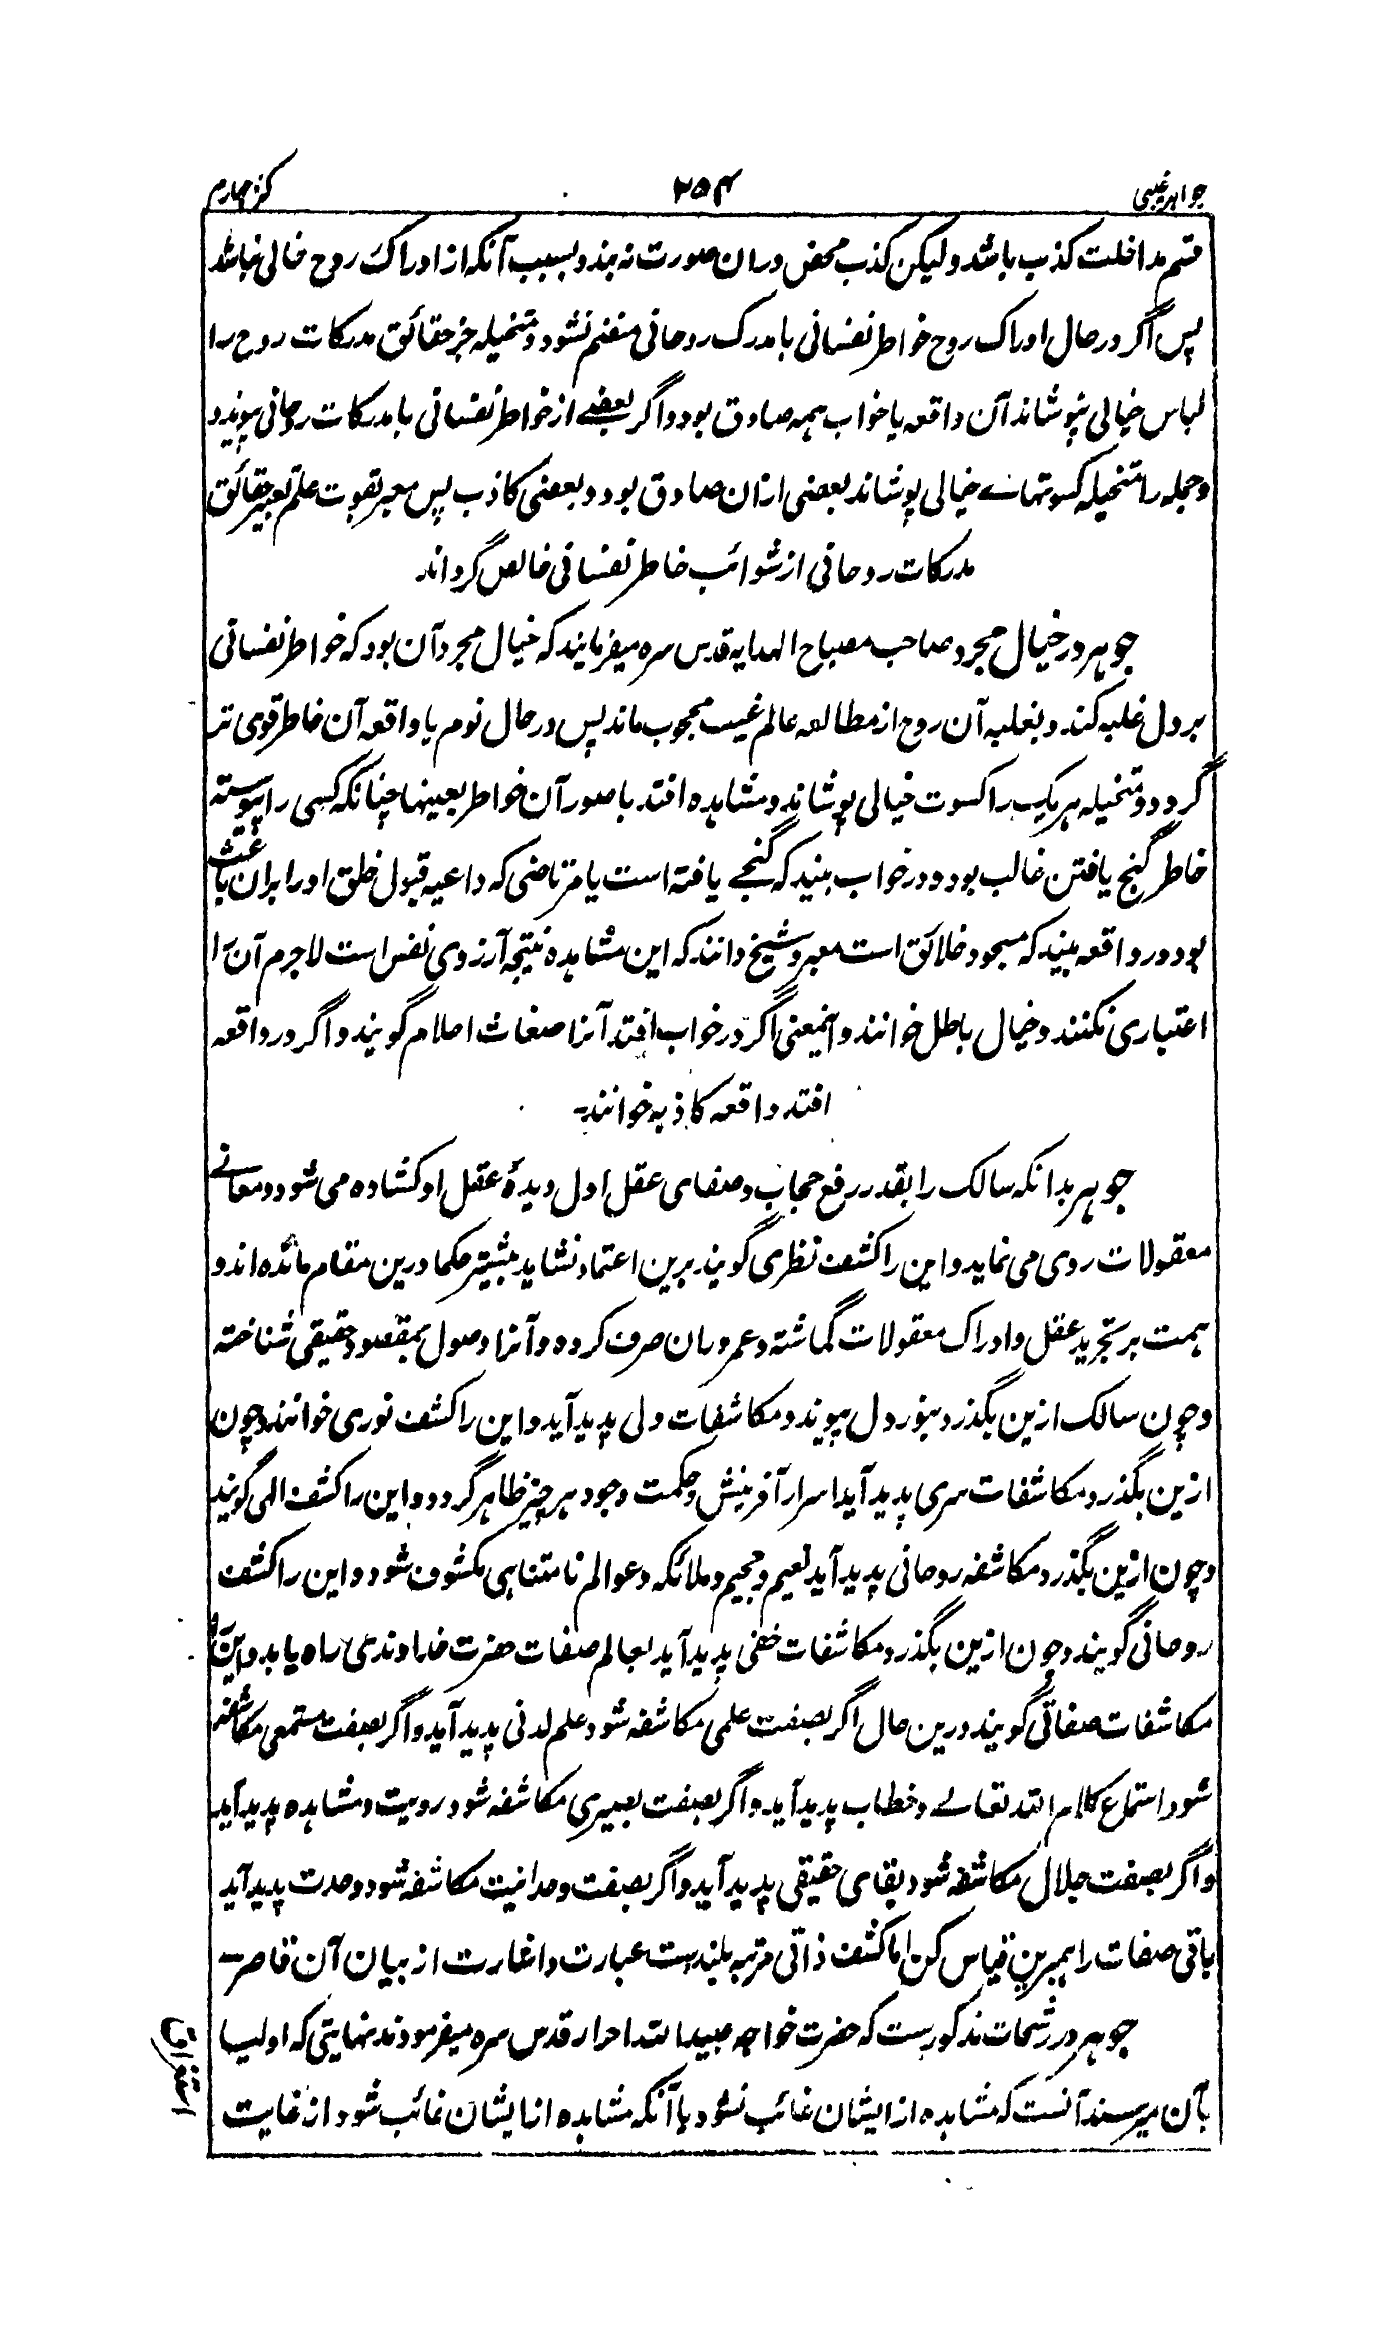 جواہر غیبی
۲۵۴
کنز چہارم
قسم مداخلت کذب باشد ولیکن کذب محض دران صورت نہ بندد بسبب آنکہ از ادراک روح خالی نباشد
پس اگر در حال ادراک روح خواطر نفسانی با مدرک روحانی منضم نشود و متخیلہ جز حقائق مدرکات روح را
لباس خیالی نپوشاند آن واقعہ یا خواب ہمہ صادق بود و اگر بعضے از خواطر نفسانی با مدرکات روحانی پیوندد
و جملہ را متخیلہ کسوتہاے خیالی پوشاند بعضی ازان صادق بود و بعضی کاذب پس معبر بقوت علم تعبیر حقائق
مدرکات روحانی از شوائب خاطر نفسانی خالص گرداند
جوہر در خیال مجرد صاحب مصباح الہدایہ قدس سرہ میفرمایند کہ خیال مجرد آن بود کہ خواطر نفسانی
بر دل غلبہ کند و بغلبہ آن روح از مطالعہ عالم غیب محجوب ماند پس در حال نوم یا واقعہ آن خاطر قوی تر
گردد و متخیلہ ہر یک را کسوت خیالی پوشاند و مشاہدہ افتد با صور آن خواطر بعینہا چنانکہ کسی را پیوستہ
خاطر گنج یافتن غالب بود و در خواب بیند کہ گنجے یافتہ است یا مرتاضی کہ داعیہ قبول خلق او را بران باعث
بود و در واقعہ بیند کہ مسجود خلائق است معبر و شیخ دانند کہ این مشاہدہ نتیجہ آرزوی نفس است لاجرم آن را
اعتباری نکنند و خیال باطل خوانند و اینمعنی اگر در خواب افتد آنرا ضغاث احلام گویند و اگر در واقعہ
افتد واقعہ کاذبہ خوانند۔
جوہر بدانکہ سالک را بقدر رفع حجاب و صفای عقل اول دیدۂ عقل او کشادہ می شود و معانے
معقولات روی می نماید و این را کشف نظری گویند برین اعتماد نشاید بیشتر حکما درین مقام ماندہ اند و
ہمت بر تجرید عقل و ادراک معقولات گماشتہ و عمر دران صرف کردہ و آنرا وصول بمقصود حقیقی شناختہ
و چون سالک ازین بگذرد بنور دل پیوندد مکاشفات دلی پدید آید و این را کشف نوری خوانند و چون
ازین بگذرد مکاشفات سری پدید آید اسرار آفرینش و حکمت وجود ہر چیز ظاہر گردد و این را کشف الہی گویند
و چون ازین بگذرد مکاشفہ روحانی پدید آید نعیم و جحیم و ملائکہ و عوالم نامتناہی مکشوف شود و این را کشف
روحانی گویند و چون ازین بگذرد مکاشفات خفی پدید آید بعالم صفات حضرت خداوندی راہ یابد و این را
مکاشفات صفاتی گویند درین حال اگر بصفت علمی مکاشفہ شود علم لدنی پدید آید و اگر بصفت مستمعی مکاشفہ
شود استماع کلام اللہ تعالے و خطاب پدید آید و اگر بصفت بصیری مکاشفہ شود رویت و مشاہدہ پدید آید
و اگر بصفت جلال مکاشفہ شود بقای حقیقی پدید آید و اگر بصفت وحدانیت مکاشفہ شود وحدت پدید آید
باقی صفات را ہمبرین قیاس کن اما کشف ذاتی مرتبہ بلندست عبارت و اشارت از بیان آن قاصر
جوہر در رشحات مذکورست کہ حضرت خواجہ عبید اللہ احرار قدس سرہ میفرمودند نہایتی کہ اولیا
بآن میرسند آنست کہ مشاہدہ از ایشان غائب نشود یا آنکہ مشاہدہ از ایشان غائب شود از غایت
استغراق